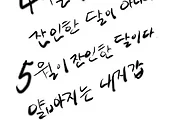 4월은
잔인한 달이 아니
5월이 잔인한 달이다
얇아지는 내 지갑